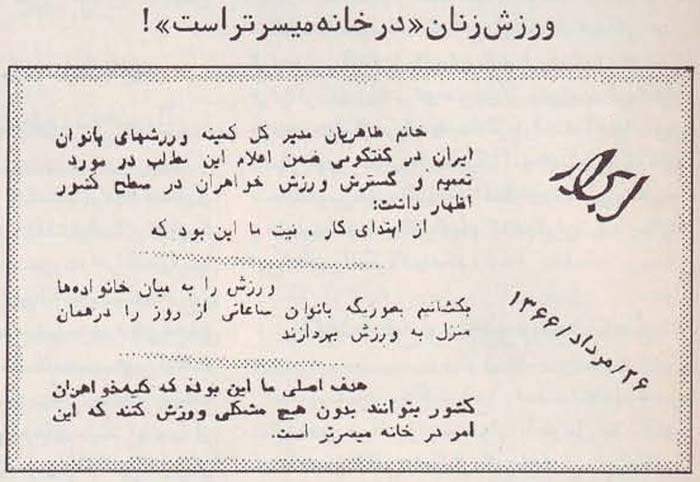 ورزش زنان «در خانه میسرتر است»!
خانم طاهریان مدیر کل کمیته ورزشهای بانوان
ایران در گفتگوئی ضمن اعلام این مطالب در مورد
تعمیم و گسترش ورزش خواهران در سطح کشور
اظهار داشت:
از ابتدای کار، نیت ما این بود که
ورزش را به میان خانواده‌ها
بکشانیم بطوریکه بانوان ساعاتی از روز را درهمان
منزل به ورزش بپردازند
هدف اصلی ما این بوده که کلیه‌خواهران
کشور بتوانند بدون هیچ مشکلی ورزش کنند که این
امر در خانه میسرتر است.
ابرار
۲۶/مرداد/۱۳۶۶